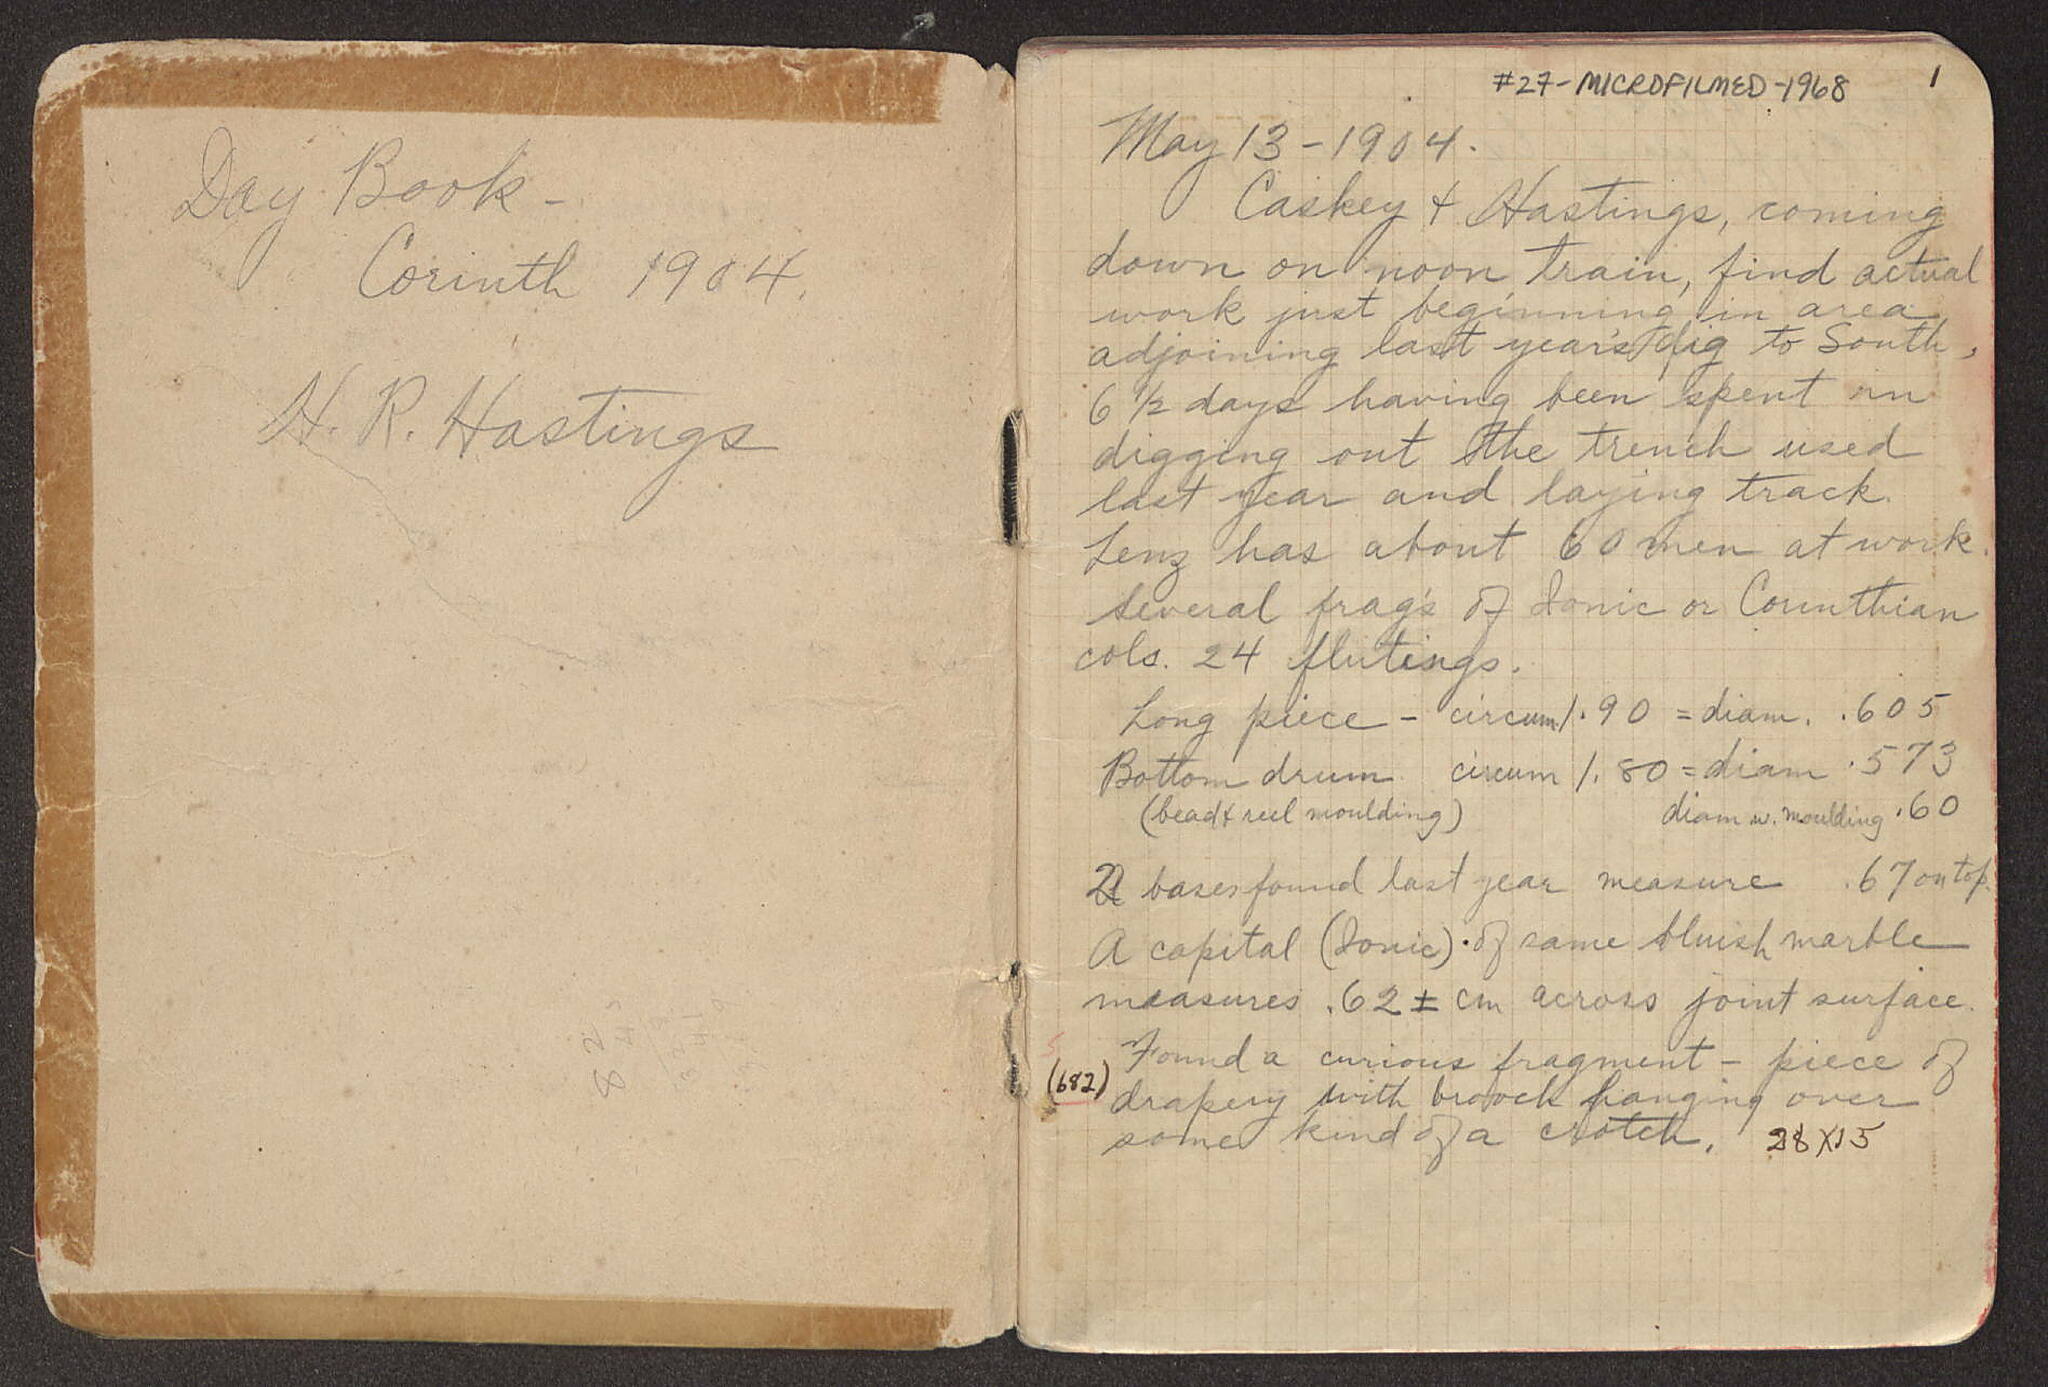 Day Book -
Corinth 1904.
H. R. Hastings
82
#27-MICROFILMED-1968
1
May 13 - 1904.
Caskey & Hastings, coming
down on noon train, find actual
work just beginning in area
adjoining last year's dig to South,
6 1/2 days having been spent in
digging out the trench used
last year and laying track.
Lenz has about 60 men at work.
Several frag's of Ionic or Corinthian
cols. 24 flutings.
Long piece - circum 1.90 = diam. .605
Bottom drum circum 1.80 = diam .573
(bead & reel moulding) diam w. moulding .60
2 bases found last year measure .67 on top.
A capital (Ionic) of same bluish marble
measures .62 ± cm across joint surface.
Found a curious fragment - piece of
(682) drapery with brooch hanging over
some kind of a crotch. 28 X 15